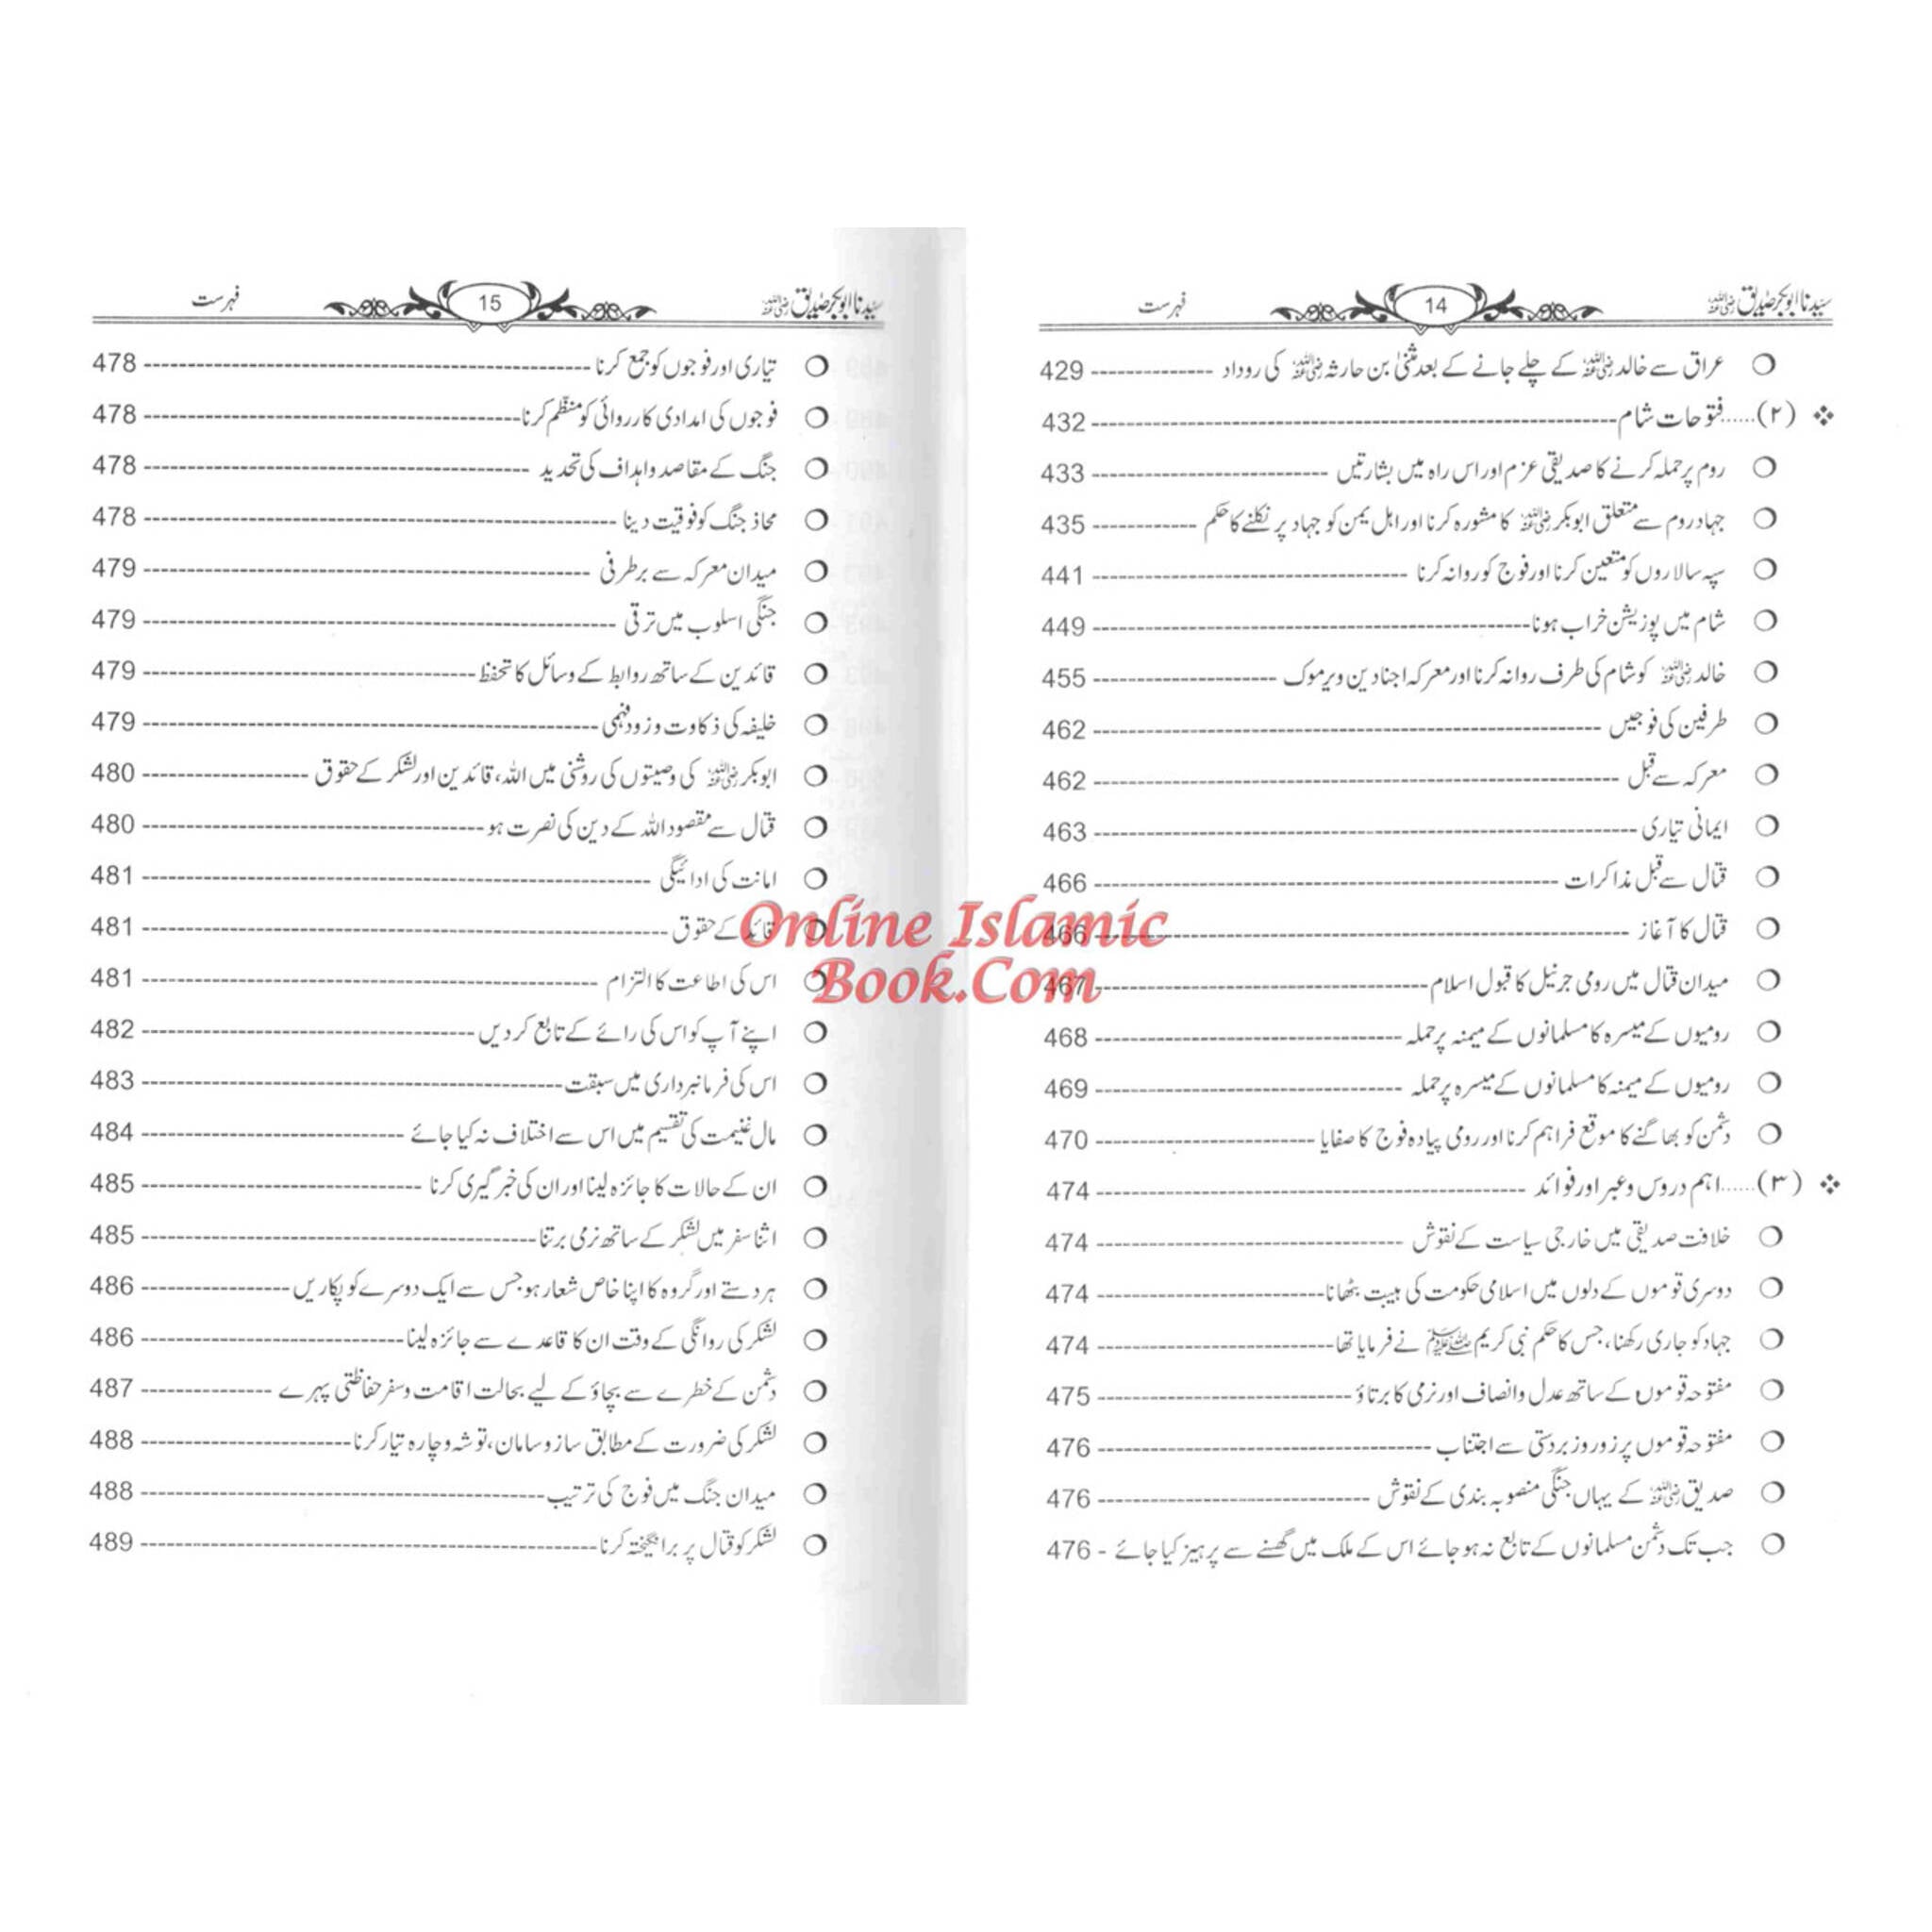 سیدنا ابوبکر صدیق رضی اللہ عنہ 14 فہرست
عراق سے خالد رضی اللہ عنہ کے چلے جانے کے بعد مثنیٰ بن حارثہ رضی اللہ عنہ کی روداد -------------- 429
(۲)..... فتوحات شام -------------- 432
روم پر حملہ کرنے کا صدیقی عزم اور اس راہ میں بشارتیں -------------- 433
جہاد روم سے متعلق ابوبکر رضی اللہ عنہ کا مشورہ کرنا اور اہل یمن کو جہاد پر نکلنے کا حکم -------------- 435
سپہ سالاروں کو متعین کرنا اور فوج کو روانہ کرنا -------------- 441
شام میں پوزیشن خراب ہونا -------------- 449
خالد رضی اللہ عنہ کو شام کی طرف روانہ کرنا اور معرکہ اجنادین و یرموک -------------- 455
طرفین کی فوجیں -------------- 462
معرکہ سے قبل -------------- 462
ایمانی تیاری -------------- 463
قتال سے قبل مذاکرات -------------- 466
قتال کا آغاز -------------- 466
میدان قتال میں رومی جرنیل کا قبول اسلام -------------- 467
رومیوں کے میسرہ کا مسلمانوں کے میمنہ پر حملہ -------------- 468
رومیوں کے میمنہ کا مسلمانوں کے میسرہ پر حملہ -------------- 469
دشمن کو بھاگنے کا موقع فراہم کرنا اور رومی پیادہ فوج کا صفایا -------------- 470
(۳)..... اہم دروس و عبر اور فوائد -------------- 474
خلافت صدیقی میں خارجی سیاست کے نقوش -------------- 474
دوسری قوموں کے دلوں میں اسلامی حکومت کی ہیبت بٹھانا -------------- 474
جہاد کو جاری رکھنا، جس کا حکم نبی کریم ﷺ نے فرمایا تھا -------------- 474
مفتوحہ قوموں کے ساتھ عدل و انصاف اور نرمی کا برتاؤ -------------- 475
مفتوحہ قوموں پر زور زبردستی سے اجتناب -------------- 476
صدیق رضی اللہ عنہ کے یہاں جنگی منصوبہ بندی کے نقوش -------------- 476
جب تک دشمن مسلمانوں کے تابع نہ ہو جائے اس کے ملک میں گھسنے سے پرہیز کیا جائے - 476
سیدنا ابوبکر صدیق رضی اللہ عنہ 15 فہرست
تیاری اور فوجوں کو جمع کرنا -------------- 478
فوجوں کی امدادی کارروائی کو منظّم کرنا -------------- 478
جنگ کے مقاصد و اہداف کی تحدید -------------- 478
محاذ جنگ کو فوقیت دینا -------------- 478
میدان معرکہ سے برطرفی -------------- 479
جنگی اسلوب میں ترقی -------------- 479
قائدین کے ساتھ روابط کے وسائل کا تحفظ -------------- 479
خلیفہ کی ذکاوت و زود فہمی -------------- 479
ابوبکر رضی اللہ عنہ کی وصیتوں کی روشنی میں اللہ، قائدین اور لشکر کے حقوق -------------- 480
قتال سے مقصود اللہ کے دین کی نصرت ہو -------------- 480
امانت کی ادائیگی -------------- 481
قائد کے حقوق -------------- 481
اس کی اطاعت کا التزام -------------- 481
اپنے آپ کو اس کی رائے کے تابع کر دیں -------------- 482
اس کی فرمانبرداری میں سبقت -------------- 483
مال غنیمت کی تقسیم میں اس سے اختلاف نہ کیا جائے -------------- 484
ان کے حالات کا جائزہ لینا اور ان کی خبر گیری کرنا -------------- 485
اثنا سفر میں لشکر کے ساتھ نرمی برتنا -------------- 485
ہر دستے اور گروہ کا اپنا خاص شعار ہو جس سے ایک دوسرے کو پکاریں -------------- 486
لشکر کی روانگی کے وقت ان کا قاعدے سے جائزہ لینا -------------- 486
دشمن کے خطرے سے بچاؤ کے لیے بحالت اقامت و سفر حفاظتی پہرے -------------- 487
لشکر کی ضرورت کے مطابق ساز و سامان، توشہ و چارہ تیار کرنا -------------- 488
میدان جنگ میں فوج کی ترتیب -------------- 488
لشکر کو قتال پر برانگیختہ کرنا -------------- 489
Online Islamic
Book.Com